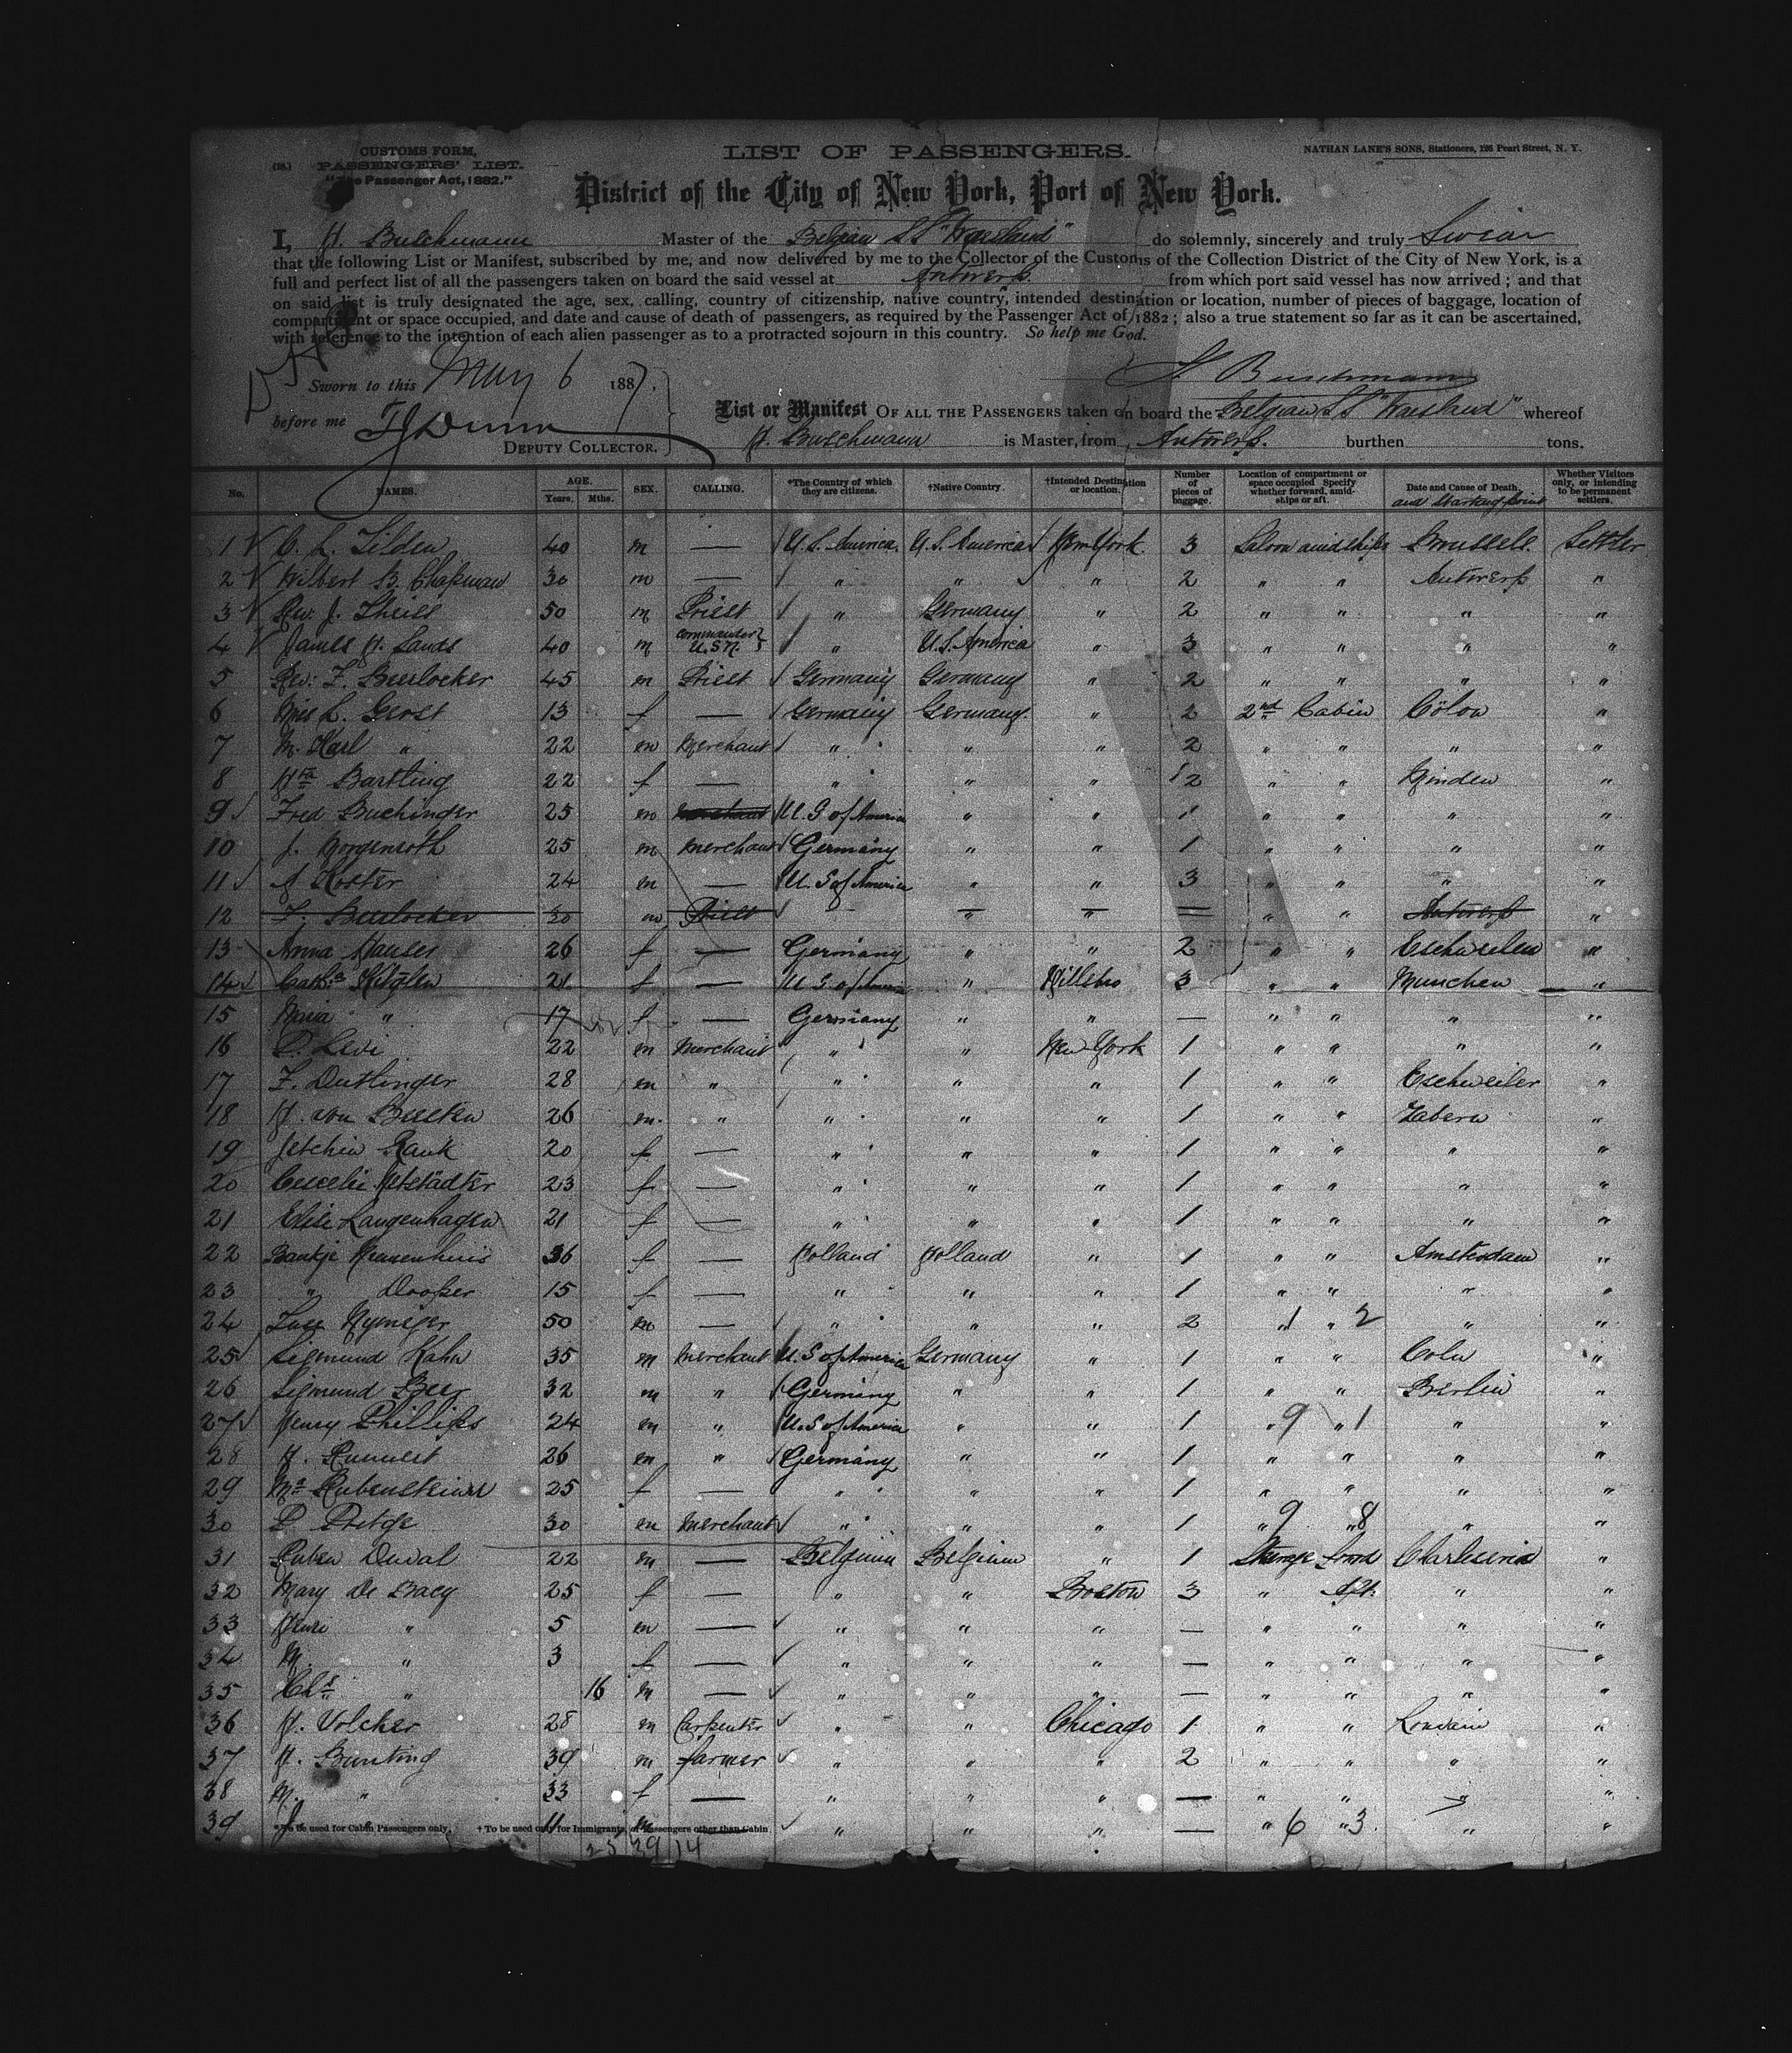 CUSTOMS FORM,
(18.) PASSENGERS' LIST.
"The Passenger Act, 1882."
LIST OF PASSENGERS.
NATHAN LANE'S SONS, Stationers, 126 Pearl Street, N. Y.
District of the City of New York, Port of New York.
I, H. Buschmann Master of the Belgian SS "Waesland" do solemnly, sincerely and truly Swear
that the following List or Manifest, subscribed by me, and now delivered by me to the Collector of the Customs of the Collection District of the City of New York, is a
full and perfect list of all the passengers taken on board the said vessel at Antwerp. from which port said vessel has now arrived; and that
on said list is truly designated the age, sex, calling, country of citizenship, native country, intended destination or location, number of pieces of baggage, location of
compartment or space occupied, and date and cause of death of passengers, as required by the Passenger Act of 1882; also a true statement so far as it can be ascertained,
with reference to the intention of each alien passenger as to a protracted sojourn in this country. So help me God.
H Buschmann
Sworn to this May 6 1887.
before me
DEPUTY COLLECTOR.
List or Manifest OF ALL THE PASSENGERS taken on board the Belgian SS "Waesland" whereof
H. Buschmann is Master, from Antwerp. burthen tons.
No. NAMES. AGE. Years. Mths. SEX. CALLING. *The Country of which they are citizens. †Native Country. †Intended Destination or location. Number of pieces of baggage. Location of compartment or space occupied Specify whether forward, amidships or aft. Date and Cause of Death. and Starting point Whether Visitors only, or intending to be permanent settlers.
1 C. L. Tilden 40 m — U.S. America U.S. America New York 3 Saloon amidships Brussels. Settler
2 Wilbert B. Chapman 30 m — " " " 2 " " Antwerp "
3 Rev. J. Theiss 50 m Priest " Germany " 2 " " " "
4 James H. Sands 40 m Commander U.S.N. " U.S. America " 3 " " " "
5 Rev: F. Beerlocker 45 m Priest Germany Germany " 2 " " " "
6 Mrs L. Gerst 13 f — Germany Germany " 2 2nd Cabin Cöln "
7 M. Karl " 22 m Merchant " " " 2 " " " "
8 Bartling 22 f — " " " 2 " " Minden "
9 Fred Buchinger 25 m merchant U. S of America " " 1 " " " "
10 J. Morgenroth 25 m Merchant Germany " " 1 " " " "
11 A Koster 24 m — U. S of America " " 3 " " " "
12 F. Beerlocker 30 m Priest — " " — " " Antwerp "
13 Anna Hauser 26 f — Germany " " 2 " " Eschweiler "
14 Cath.a 21 f — U S of America " Hillsbro 3 " " Munchen "
15 Maria " 17 f — Germany " " — " " " "
16 Levi 22 m Merchant " " New York 1 " " " "
17 F. Dutlinger 28 m " " " " 1 " " Eschweiler "
18 H. von 26 m. " " " " 1 " " Zabern "
19 Jetchen Rank 20 f — " " " 1 " " " "
20 23 f — " " " 1 " " " "
21 Elise Langenhagen 21 f — " " " 1 " " " "
22 36 f — Holland Holland " 1 " " Amsterdam "
23 " Dooper 15 f — " " " 1 " " " "
24 50 m — " " " 2 " 1 " 2 " "
25 Sigmund Kahn 35 m Merchant U. S of America Germany " 1 " " Coln "
26 Sigmund Beer 32 m " Germany " " 1 " " Berlin "
27 Henry Phillips 24 m " U. S of America " " 1 " 9 " 1 " "
28 H. 26 m " Germany " " 1 " " " "
29 Rubensteiner 25 f — " " " 1 " " " "
30 P 30 m Merchant " " " 1 " 9 " 8 " "
31 Duval 22 m — Belgium Belgium " 1 Steerage "
32 Mary De Bacy 25 f — " " Boston 3 " Aft. " "
33 Henri " 5 m — " " " — " " " "
34 M. " 3 f — " " " — " " " "
35 Chs " 16 m — " " " — " " " "
36 H. Volcher 28 m Carpenter " " Chicago 1 " " Louvain "
37 H. Bunting 39 m farmer " " " 2 " " " "
38 M. " 33 f — " " " — " " " "
39 J. " 11 m — " " " — " 6 " 3. " "
* To be used for Cabin Passengers only. † To be used only for Immigrants, or Passengers other than Cabin
25 39 14